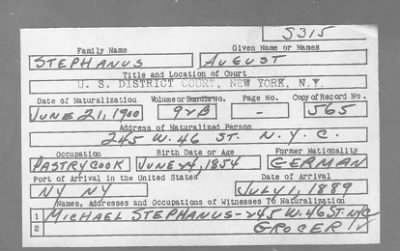 S315
Family Name Given Name or Names
STEPHANUS AUGUST
Title and Location of Court
U. S. DISTRICT COURT, NEW YORK, N.Y.
Date of Naturalization Volume or Bundle No. Page No. Copy of Record No.
JUNE 21, 1900 92B - 565
Address of Naturalized Person
245 W. 46 ST. N.Y.C.
Occupation Birth Date or Age Former Nationality
PASTRYCOOK JUNE 24, 1854 GERMAN
Port of Arrival in the United States Date of Arrival
NY NY JULY 1, 1889
Names, Addresses and Occupations of Witnesses To Naturalization
1 MICHAEL STEPHANUS-245 W. 46 ST. NYC
2 GROCER